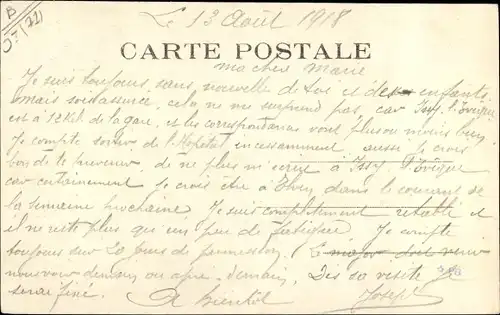 Le 13 Août 1918
CARTE POSTALE
ma chère Marie
Je suis toujours sans nouvelle de toi et des enfants
mais sois assurée, cela ne me surprend pas, car Issy l'Evêque
est à 12 Kil. de la gare, et les correspondances vont plus ou moins bien
Je compte sortir de l'Hopital incessamment, aussi je crois
bon de te prévenir de ne plus m'écrire à Issy l'Evêque
car certainement je crois être à dans le courant de
la semaine prochaine Je suis complètement rétabli et
il ne reste plus qu'un peu de fatigue. Je compte
toujours sur 20 jours de permission. Le major doit venir
nous voir demain ou après-demain, Dès sa visite je
serai fixé. A bientôt Joseph